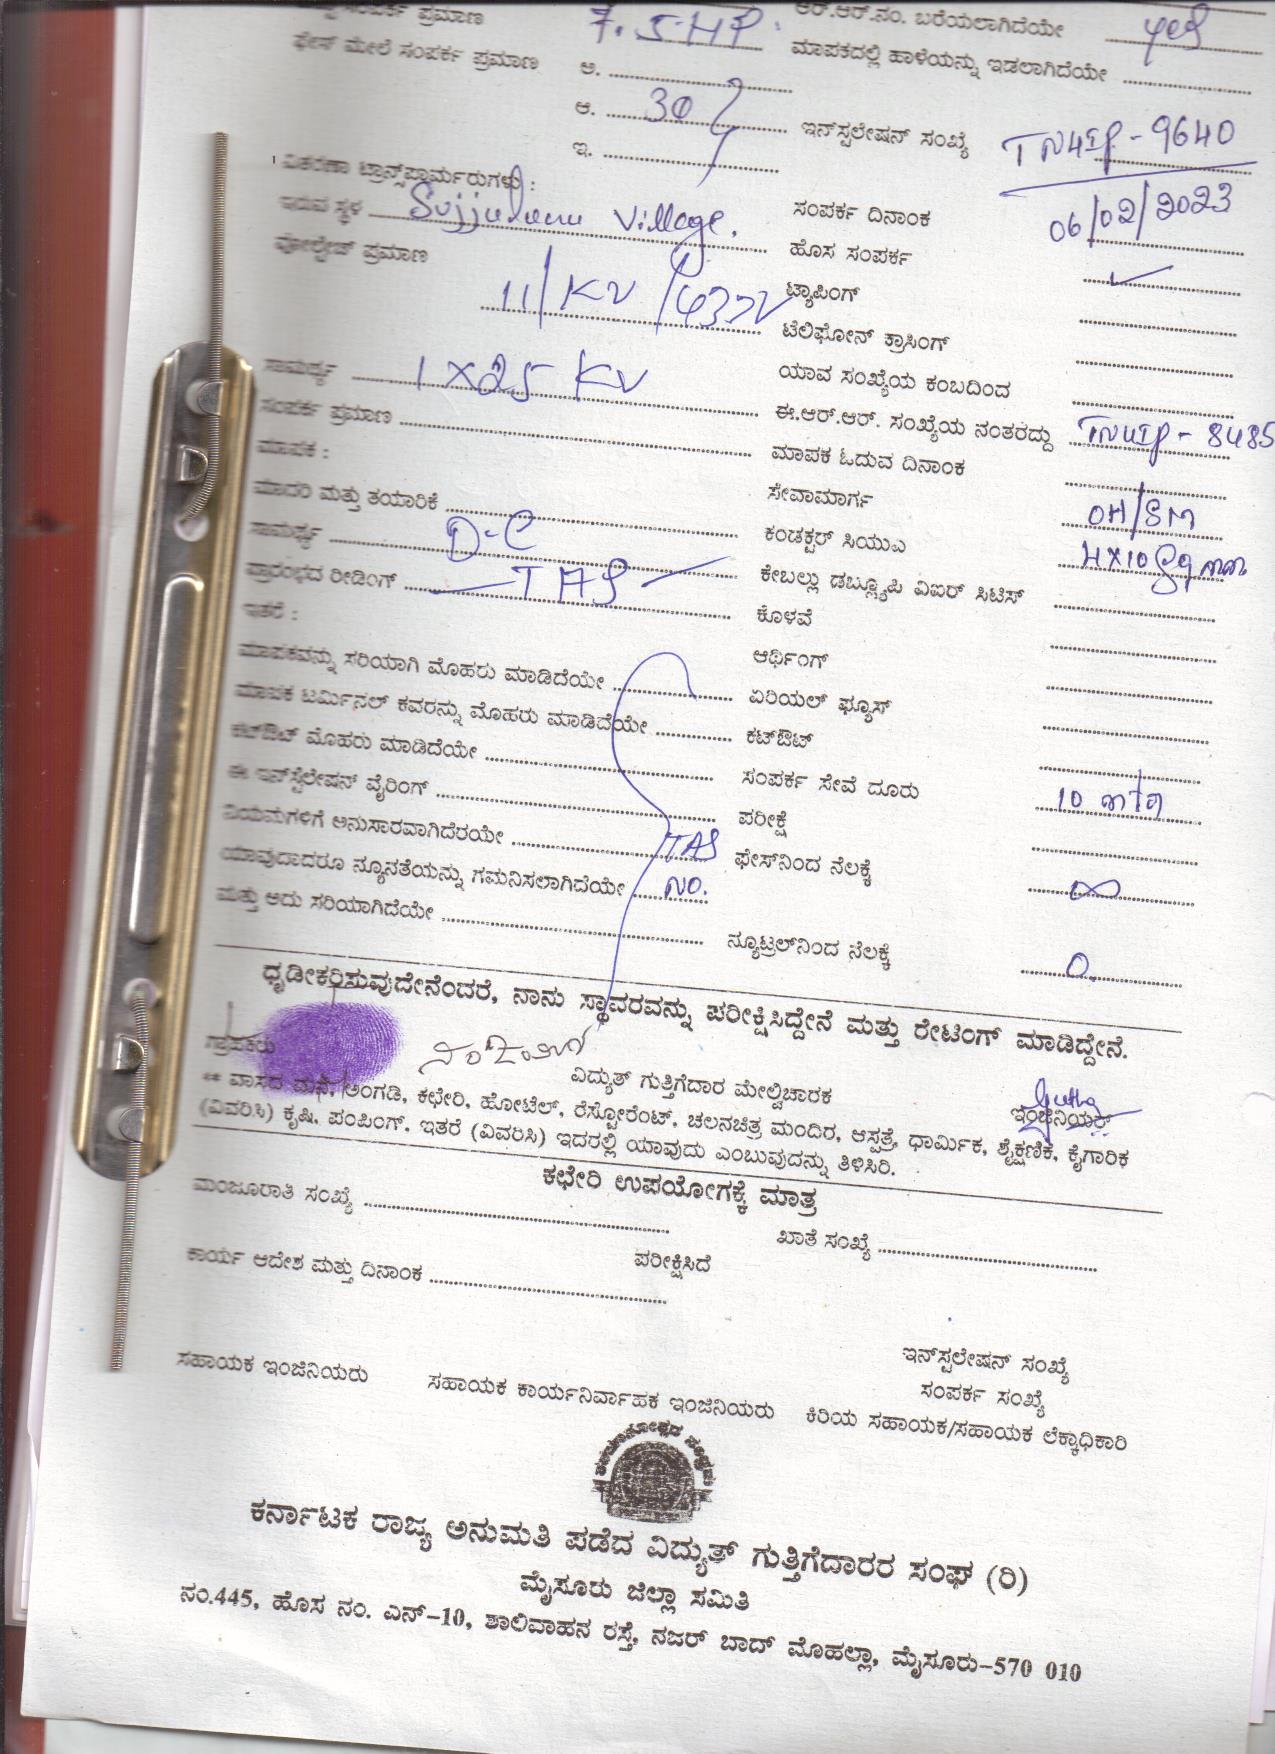 ಸಂಪರ್ಕ ಪ್ರಮಾಣ 7.5 HP. ಆರ್.ಆರ್.ನಂ. ಬರೆಯಲಾಗಿದೆಯೇ yes
ಫೇಸ್ ಮೇಲೆ ಸಂಪರ್ಕ ಪ್ರಮಾಣ ಅ. ಮಾಪಕದಲ್ಲಿ ಹಾಳೆಯನ್ನು ಇಡಲಾಗಿದೆಯೇ
ಆ. 30 ಇನ್‌ಸ್ಟಲೇಷನ್ ಸಂಖ್ಯೆ TN4IP - 9640
ಇ.
ವಿತರಣಾ ಟ್ರಾನ್ಸ್‌ಫಾರ್ಮರುಗಳು :
ಇರುವ ಸ್ಥಳ Village. ಸಂಪರ್ಕ ದಿನಾಂಕ 06/02/2023
ವೋಲ್ಟೇಜ್ ಪ್ರಮಾಣ ಹೊಸ ಸಂಪರ್ಕ ✓
11/KV/433V ಟ್ಯಾಪಿಂಗ್
ಟೆಲಿಫೋನ್ ಕ್ರಾಸಿಂಗ್
ಸಾಮರ್ಥ್ಯ 1X25 KV ಯಾವ ಸಂಖ್ಯೆಯ ಕಂಬದಿಂದ
ಸಂಪರ್ಕ ಪ್ರಮಾಣ ಈ.ಆರ್.ಆರ್. ಸಂಖ್ಯೆಯ ನಂತರದ್ದು TN4IP - 8485
ಮಾಪಕ : ಮಾಪಕ ಓದುವ ದಿನಾಂಕ
ಮಾದರಿ ಮತ್ತು ತಯಾರಿಕೆ ಸೇವಾಮಾರ್ಗ OH/SM
ಸಾಮರ್ಥ್ಯ D-C ಕಂಡಕ್ಟರ್ ಸಿಯುಎ 4X10 Sqmm
ಪ್ರಾರಂಭದ ರೀಡಿಂಗ್ TAS ಕೇಬಲ್ಲು ಡಬ್ಲ್ಯೂಪಿ ವಿಐರ್ ಸಿಟಿಸ್
ಇತರೆ : ಕೊಳವೆ
ಆರ್ಥಿಂಗ್
ಮಾಪಕವನ್ನು ಸರಿಯಾಗಿ ಮೊಹರು ಮಾಡಿದೆಯೇ ಏರಿಯಲ್ ಫ್ಯೂಸ್
ಮಾಪಕ ಟರ್ಮಿನಲ್ ಕವರನ್ನು ಮೊಹರು ಮಾಡಿದೆಯೇ ಕಟ್‌ಔಟ್
ಕಟ್‌ಔಟ್ ಮೊಹರು ಮಾಡಿದೆಯೇ ಸಂಪರ್ಕ ಸೇವೆ ದೂರು 10 mtr
ಈ ಇನ್‌ಸ್ಟೆಲೇಷನ್ ವೈರಿಂಗ್ ಪರೀಕ್ಷೆ
ನಿಯಮಗಳಿಗೆ ಅನುಸಾರವಾಗಿದೆರಯೇ TAS ಫೇಸ್‌ನಿಂದ ನೆಲಕ್ಕೆ ∞
ಯಾವುದಾದರೂ ನ್ಯೂನತೆಯನ್ನು ಗಮನಿಸಲಾಗಿದೆಯೇ NO.
ಮತ್ತು ಅದು ಸರಿಯಾಗಿದೆಯೇ ನ್ಯೂಟ್ರಲ್‌ನಿಂದ ನೆಲಕ್ಕೆ 0.
ಧೃಡೀಕರಿಸುವುದೇನೆಂದರೆ, ನಾನು ಸ್ಥಾವರವನ್ನು ಪರೀಕ್ಷಿಸಿದ್ದೇನೆ ಮತ್ತು ರೇಟಿಂಗ್ ಮಾಡಿದ್ದೇನೆ.
ಗ್ರಾಹಕರು ವಿದ್ಯುತ್ ಗುತ್ತಿಗೆದಾರ ಮೇಲ್ವಿಚಾರಕ ಇಂಜಿನಿಯರ್
** ವಾಸದ ಮನೆ, ಅಂಗಡಿ, ಕಛೇರಿ, ಹೋಟೆಲ್, ರೆಸ್ಟೋರೆಂಟ್, ಚಲನಚಿತ್ರ ಮಂದಿರ, ಆಸ್ಪತ್ರೆ, ಧಾರ್ಮಿಕ, ಶೈಕ್ಷಣಿಕ, ಕೈಗಾರಿಕ
(ವಿವರಿಸಿ) ಕೃಷಿ, ಪಂಪಿಂಗ್, ಇತರೆ (ವಿವರಿಸಿ) ಇದರಲ್ಲಿ ಯಾವುದು ಎಂಬುವುದನ್ನು ತಿಳಿಸಿರಿ.
ಕಛೇರಿ ಉಪಯೋಗಕ್ಕೆ ಮಾತ್ರ
ಮಂಜೂರಾತಿ ಸಂಖ್ಯೆ ಖಾತೆ ಸಂಖ್ಯೆ
ಕಾರ್ಯ ಆದೇಶ ಮತ್ತು ದಿನಾಂಕ ಪರೀಕ್ಷಿಸಿದೆ
ಇನ್‌ಸ್ಟಲೇಷನ್ ಸಂಖ್ಯೆ
ಸಂಪರ್ಕ ಸಂಖ್ಯೆ
ಸಹಾಯಕ ಇಂಜಿನಿಯರು ಸಹಾಯಕ ಕಾರ್ಯನಿರ್ವಾಹಕ ಇಂಜಿನಿಯರು ಕಿರಿಯ ಸಹಾಯಕ/ಸಹಾಯಕ ಲೆಕ್ಕಾಧಿಕಾರಿ
ಕರ್ನಾಟಕ ರಾಜ್ಯ ಅನುಮತಿ ಪಡೆದ ವಿದ್ಯುತ್ ಗುತ್ತಿಗೆದಾರರ ಸಂಘ (ರಿ)
ಮೈಸೂರು ಜಿಲ್ಲಾ ಸಮಿತಿ
ನಂ.445, ಹೊಸ ನಂ. ಎನ್-10, ಶಾಲಿವಾಹನ ರಸ್ತೆ, ನಜರ್ ಬಾದ್ ಮೊಹಲ್ಲಾ, ಮೈಸೂರು-570 010